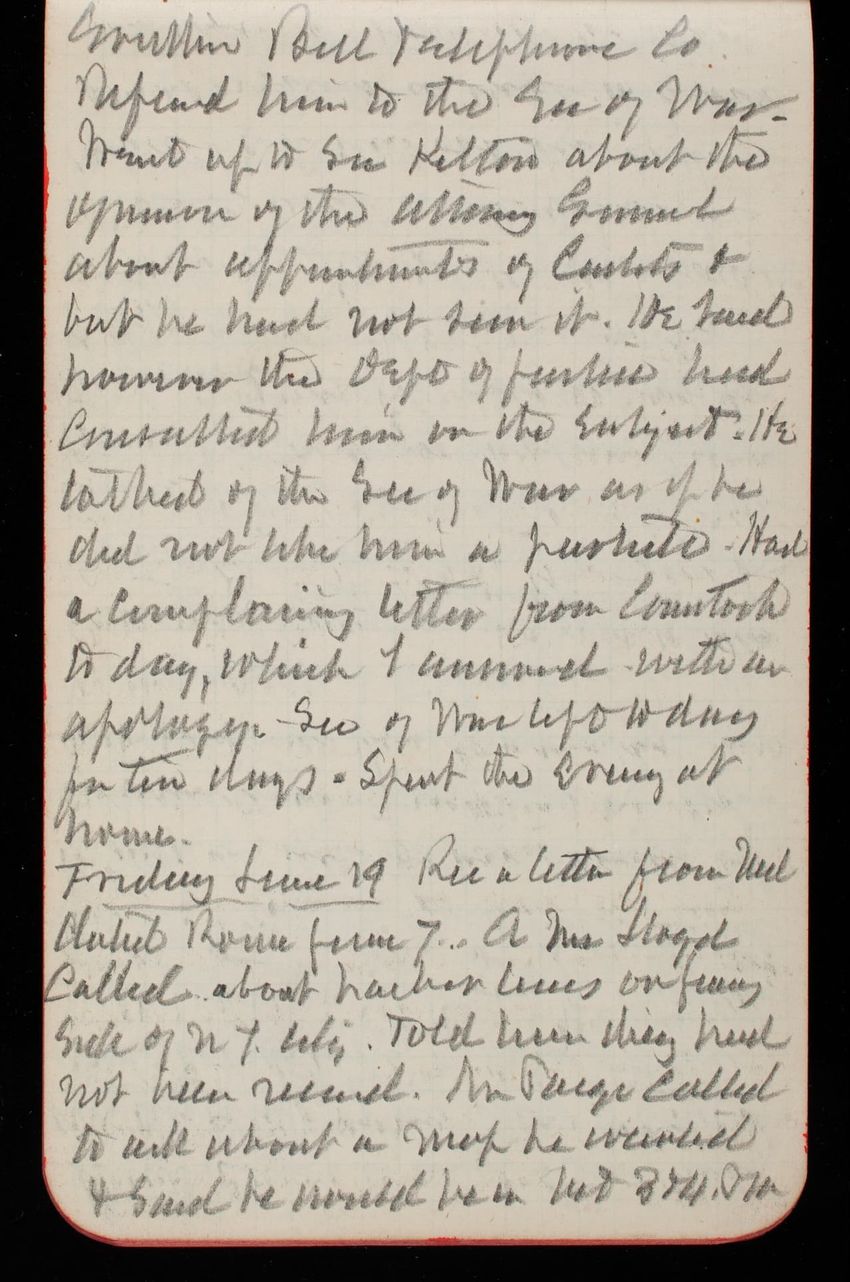 Southern Bell Telephone Co.
Refered him to the Sec of War -
Went up to see Kelton about the
opinion of the Attorney General
about appointments of Cadets &
but he had not seen it. He said
however the Dept of Justice had
consulted him on the subject. He
talked of the Sec of War as if he
did not like him a particle - Had
a complaining letter from Comstock
to day, which I answered with an
apology. Sec of War left to day
for ten days - Spent the evening at
home.
Friday June 19 Rec a letter from
dated Rome June 7.. A Mr Lloyd
called about harbor lines on Jersey
side of N Y. City. Told him they had
not been received. Mr Paige called
to ask about a map he wanted
& said he would be in bet 3 & 4.